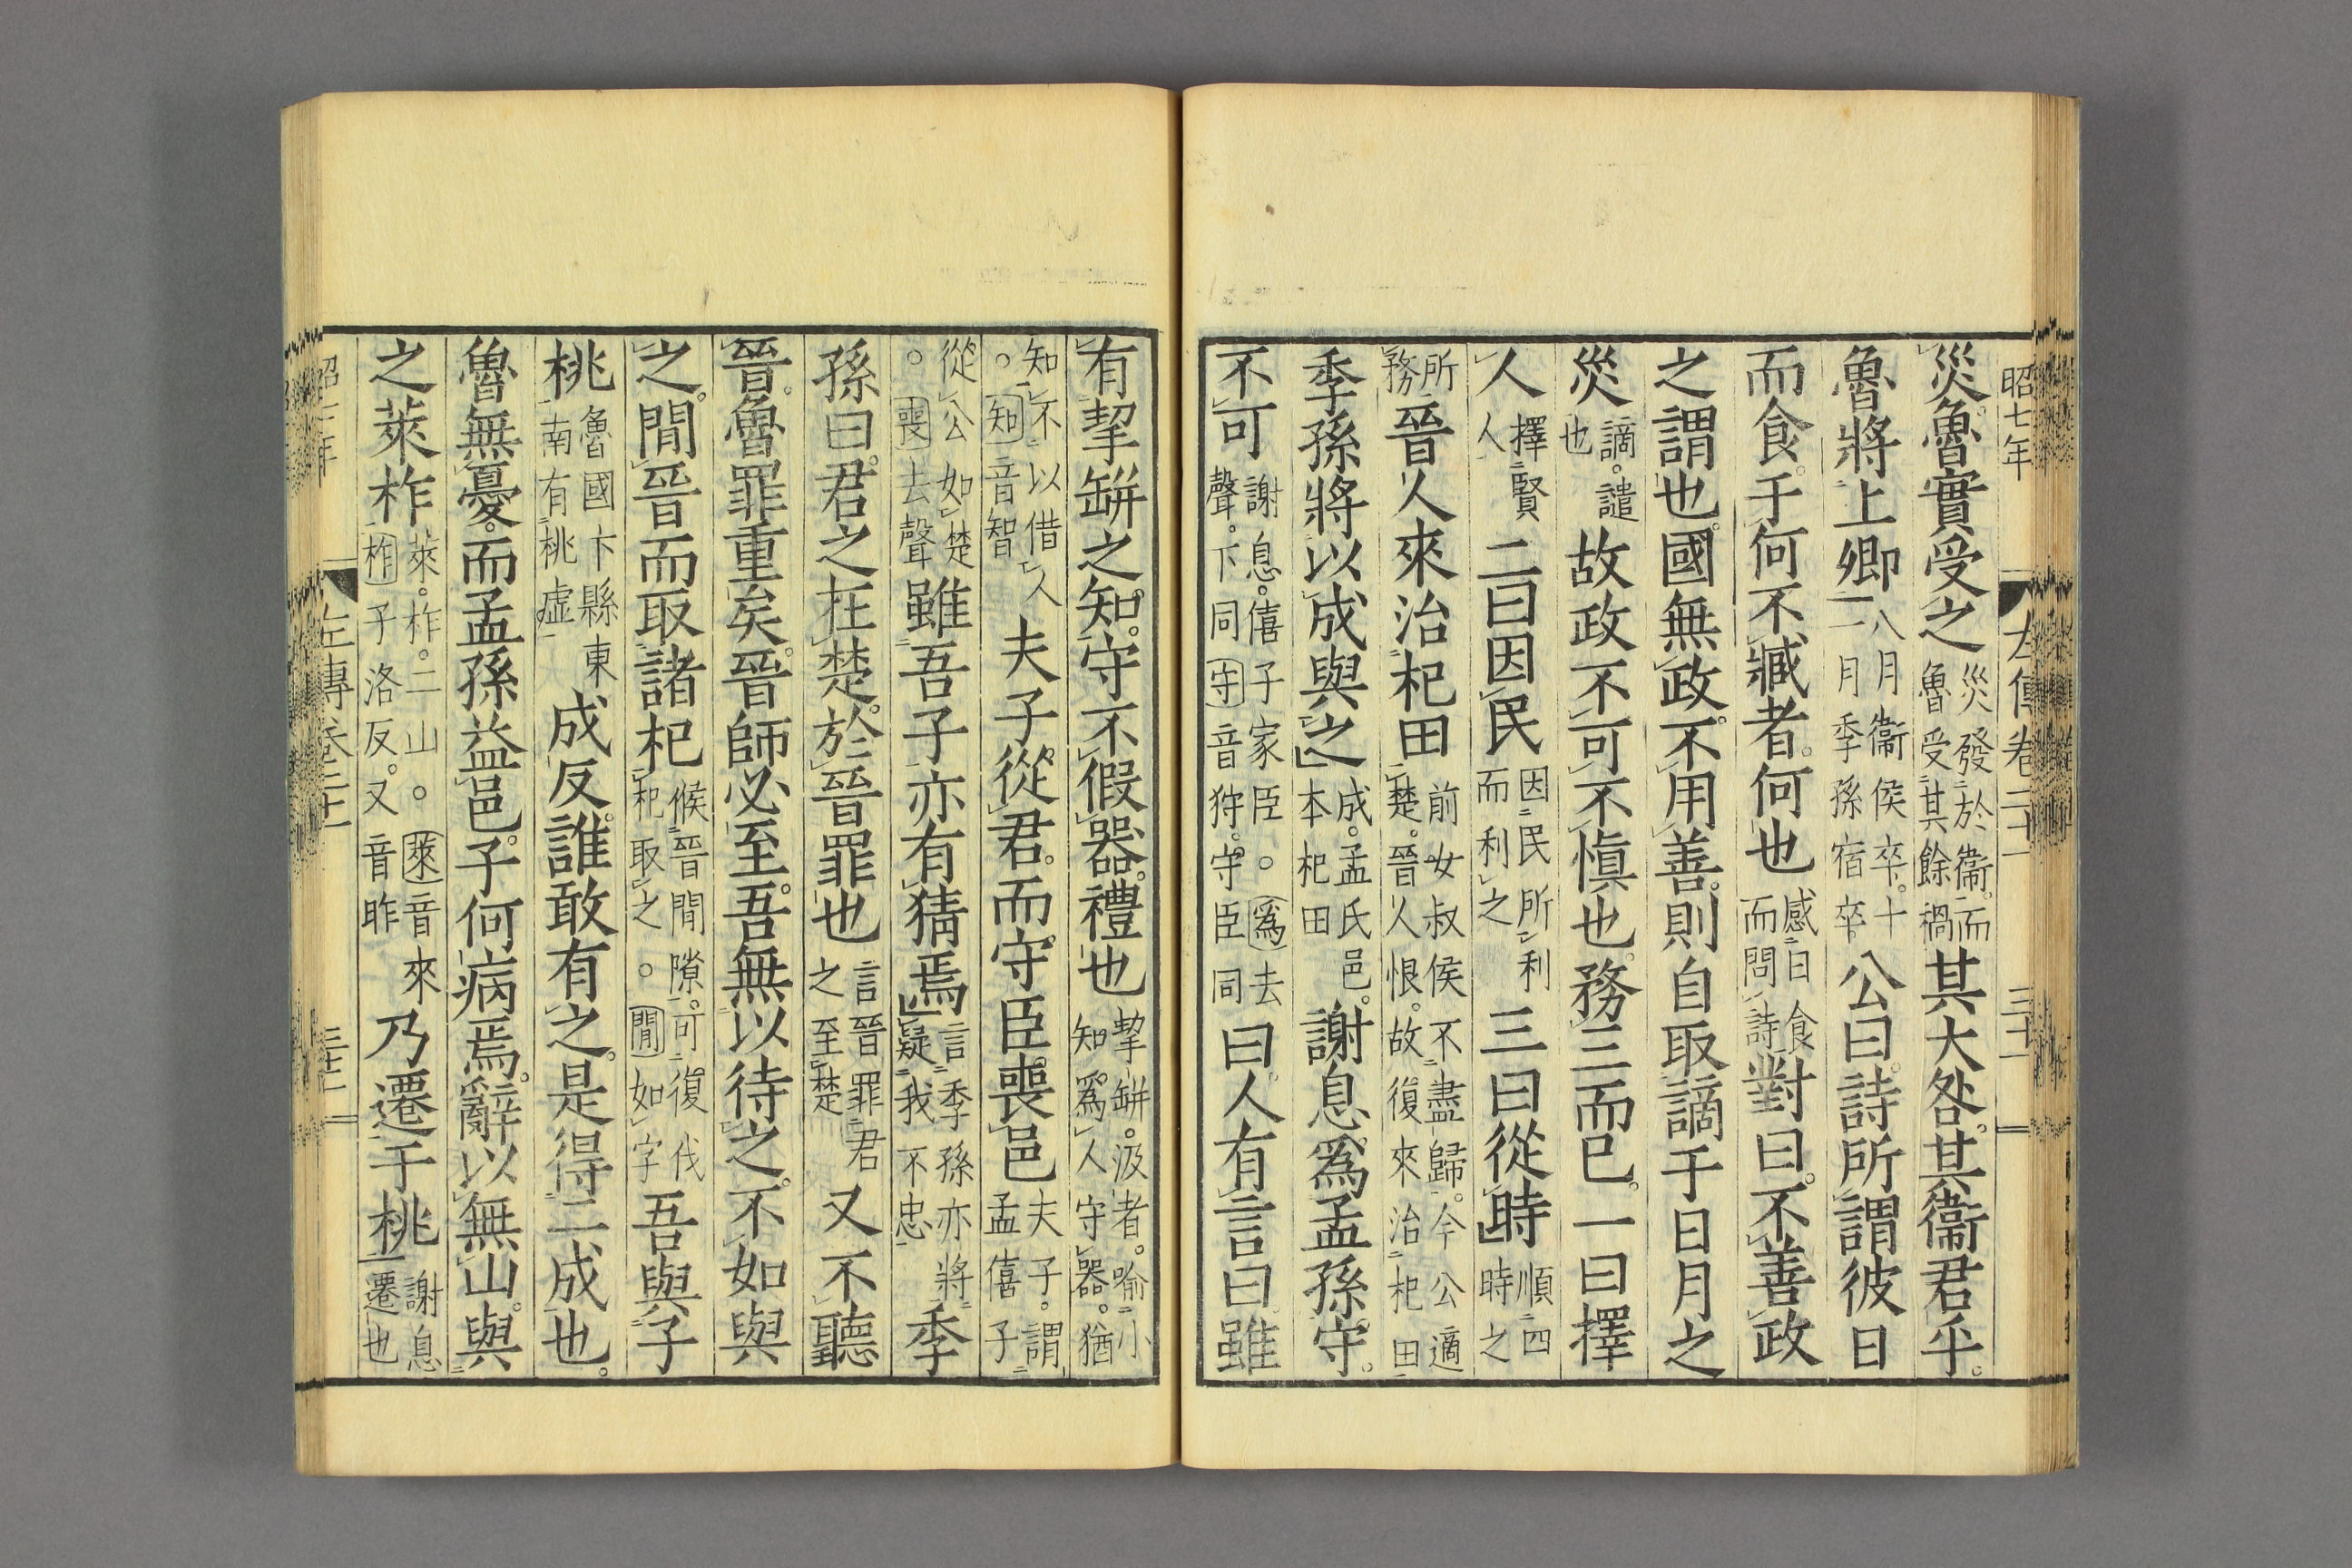 昭七年
左傳卷二十一
三十一
災魯實受之災發於衞而魯受其餘禍其大咎其衞君乎
魯將上卿八月衞侯卒十一月季孫宿卒公曰詩所謂彼日
而食于何不臧者何也感日食而問詩對曰不善政
之謂也國無政不用善則自取謫于日月之
災謫譴也故政不可不慎也務三而已一曰擇
人擇賢人二曰因民因民所利而利之三曰從時順四時之
所務晉人來治杞田前女叔侯不盡歸今公適楚晉人恨故復來治杞田
季孫將以成與之成孟氏邑本杞田謝息爲孟孫守
不可謝息僖子家臣。爲去聲下同守音狩守臣同曰人有言曰雖
有挈缾之知守不假器禮也挈缾汲者喻小知爲人守器猶
知不以借人。知音智夫子從君而守臣喪邑夫子謂孟僖子
從公如楚。喪去聲雖吾子亦有猜焉言季孫亦將疑我不忠季
孫曰君之在楚於晉罪也言晉罪君之至楚又不聽
晉魯罪重矣晉師必至吾無以待之不如與
之閒晉而取諸杞候晉閒隙可復伐杞取之。閒如字吾與子
桃魯國卞縣東南有桃虛成反誰敢有之是得二成也
魯無憂而孟孫益邑子何病焉辭以無山與
之萊柞萊柞二山。萊音來柞子洛反又音昨乃遷于桃謝息遷也
昭七年
左傳卷二十一
三十一